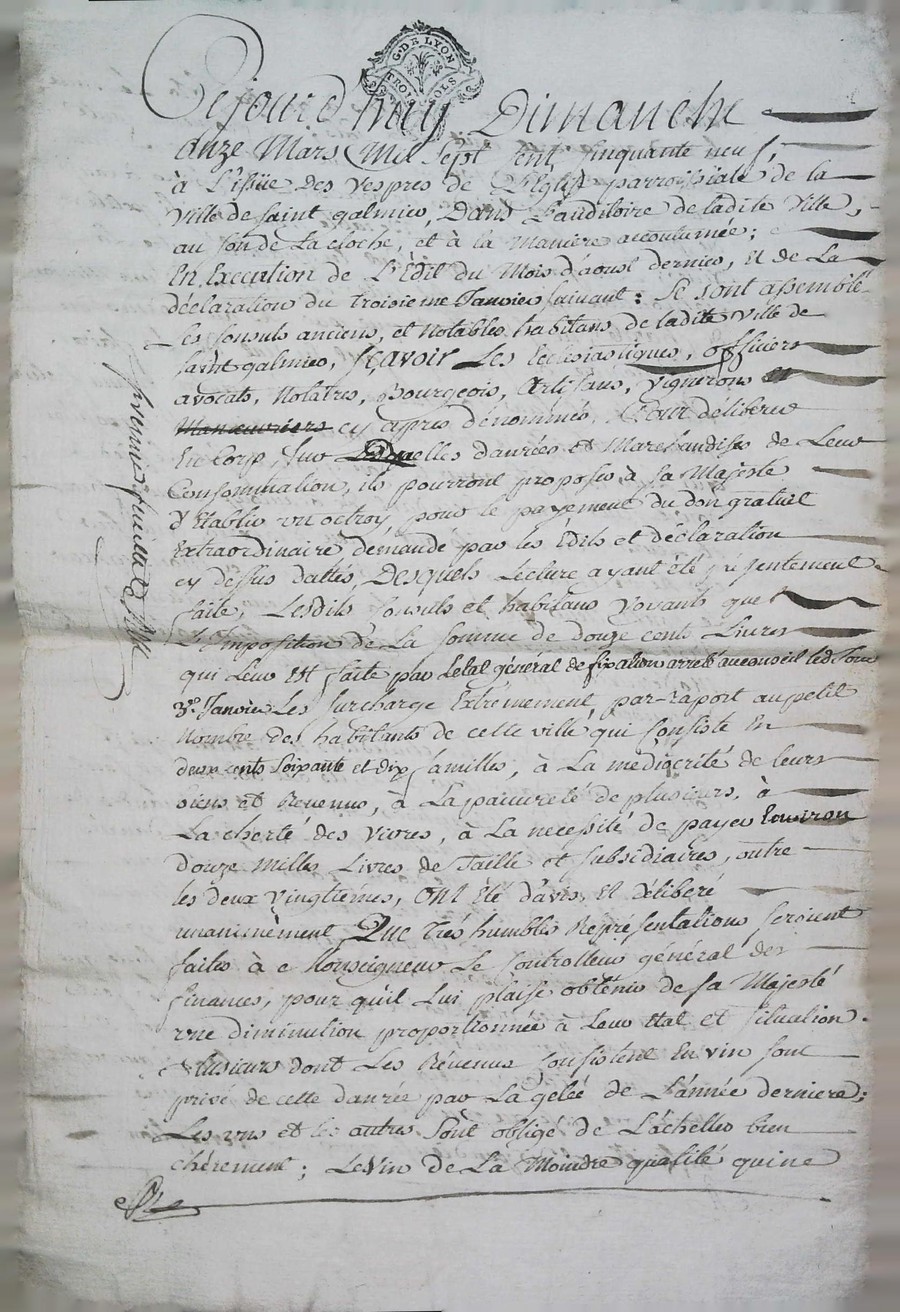 G. DE LYON
TROIS SOLS
Cejourd'huy Dimanche
onze Mars Mil Sept Cent Cinquante neuf,
à L'issüe des Vespres de L'Eglise parroissiale de la
Ville de Saint galmier, Dans L'auditoire de ladite Ville,
au son de La cloche, et à la Maniere accoutumée;
En Execution de L'Edit du Mois d'aoust dernier, et de La
déclaration du Troisieme Janvier suivant: Se sont assemblé
Les Consuls anciens, et Notables habitans de ladite Ville de
Saint galmier, sçavoir Les Ecclesiastiques, officiers
avocats, Notaires, Bourgeois, Artisans, Vignerons et
Manoeuvriers cy après dénommés, Pour déliberer
En Corp, sur Lesquelles danrées et Marchandises de Leur
Consommation, ils pourront proposer à Sa Majesté
d'Etablir un octroy, pour le payement du don gratuit
Extraordinaire demandé par les Edits et déclaration
cy dessus dattés, Desquels Lecture ayant été présentement
faite; Lesdits Consuls et habitans voyants que
L'Imposition de La Somme de douze cents Livres
qui Leur est faite par Letat général de fixation arreté au conseil led. jour
3e. Janvier Les surcharge Extremement, par-raport au petit
Nombre des habitants de cette ville qui Consiste En
deux cents Soixante et dix familles, à La mediocrité de leurs
biens et Revenus, à La pauvreté de plusieurs, à
La cherté des vivres, à La necessité de payer Environ
douze Milles Livres de Taille et subsidiaires, outre
les deux vingtièmes, ont été d'avis, et délibéré
unanimément Que Trés humbles Représentations seroient
faites à Monseigneur Le Controlleur général des
finances, pour qu'il Lui plaise obtenir de sa Majesté
une diminution proportionnée à Leur Etat et situation.
Plusieurs dont Les Révenus Consistent En vin sont
privé de cette danrée par La gelée de L'année derniere;
Les uns et les autres sont obligé de L'achetter bien
chérement; Le Vin de La Moindre qualité qui ne
premier feuillet